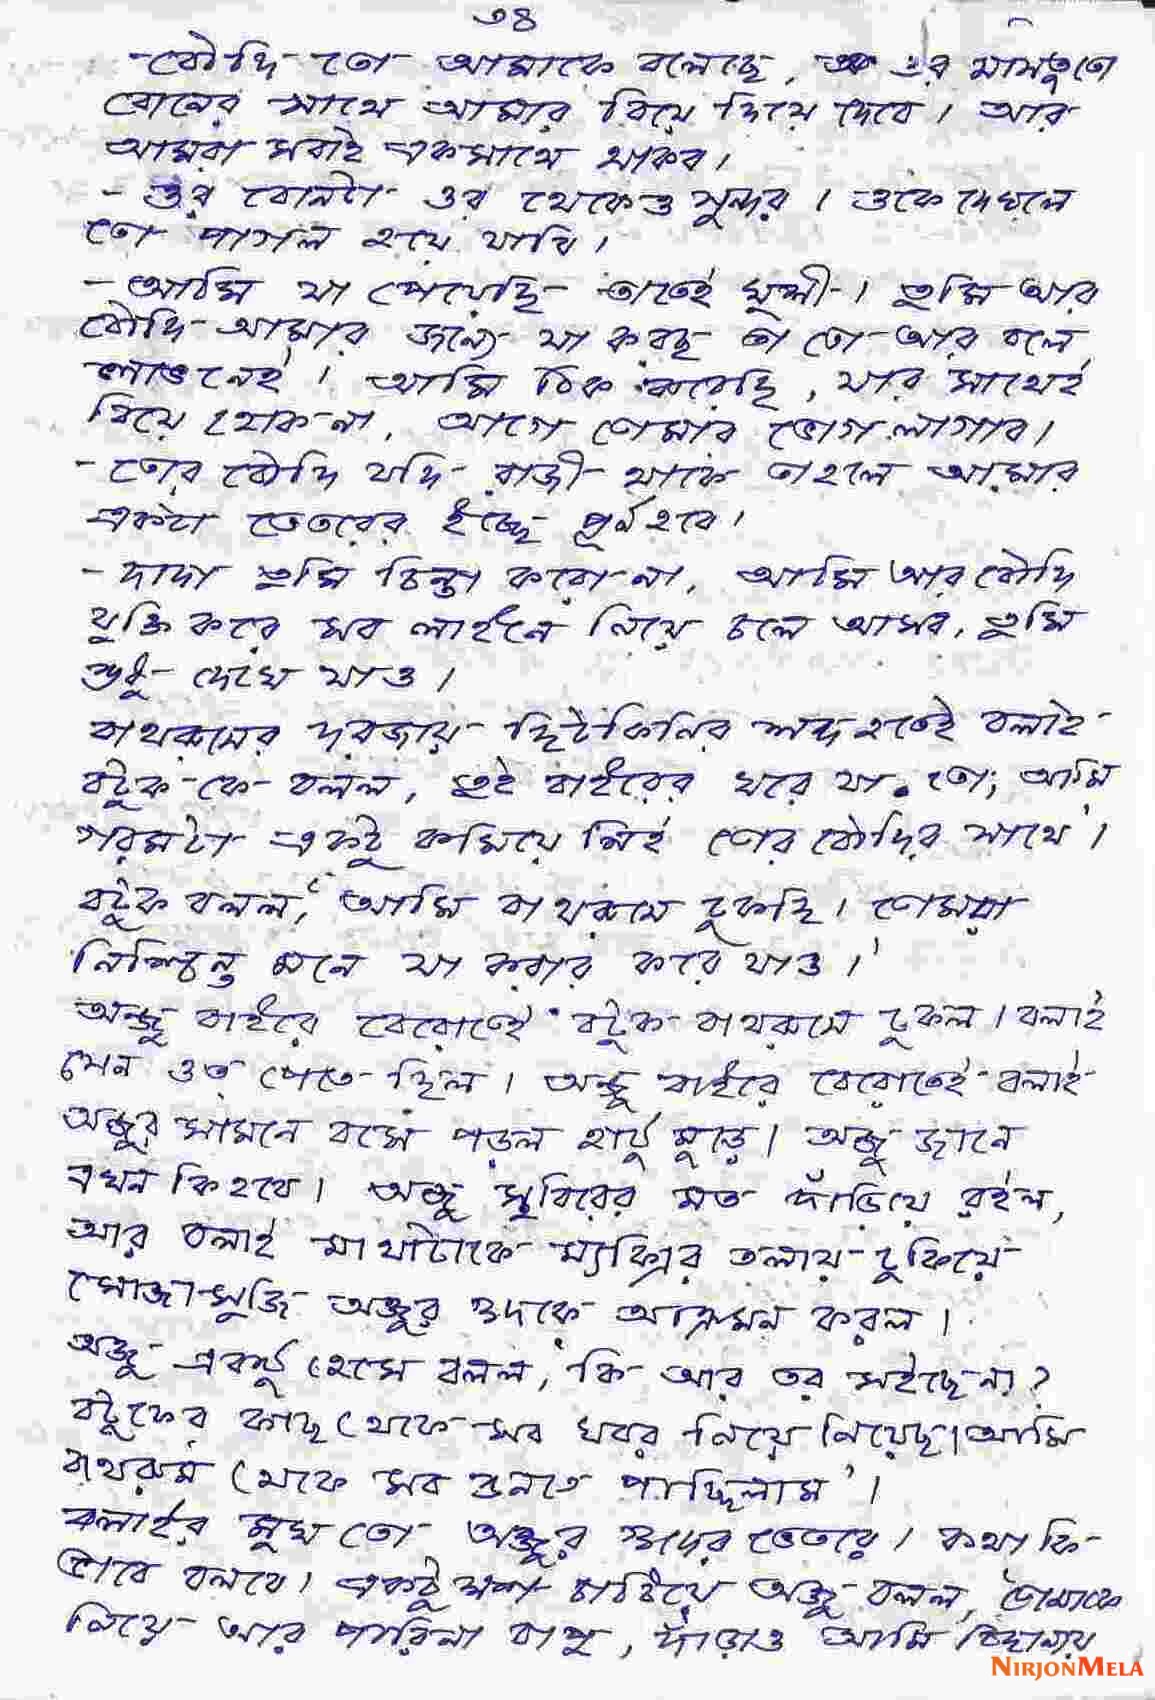 ৩৪
- বৌদি তো আমাকে বলেছে, ওর মাসতুতো
বোনের সাথে আমার বিয়ে দিয়ে দেবে। আর
আমরা সবাই একসাথে থাকব।
- ওর বোনটা ওর থেকেও সুন্দর। ওকে দেখলে
তো পাগল হয়ে যাবি।
- আমি যা পেয়েছি তাতেই খুশী। তুমি আর
বৌদি আমার জন্যে যা করছ তা তো আর বলে
লাভ নেই। আমি ঠিক করেছি, যার সাথেই
বিয়ে হোক না, আগে তোমার ভোগ লাগাব।
- তোর বৌদি যদি রাজী থাকে তাহলে আমার
একটা ভেতরের ইচ্ছে পূর্ন হবে।
- দাদা তুমি চিন্তা করো না, আমি আর বৌদি
যুক্তি করে সব লাইনে নিয়ে চলে আসব, তুমি
শুধু দেখে যাও।
বাথরুমের দরজায় ছিটকিনির শব্দ হতেই বলাই
বটুক-কে বলল, তুই বাইরের ঘরে যা তো; আমি
গরমটা একটু কমিয়ে নিই তোর বৌদির সাথে'।
বটুক বলল, 'আমি বাথরুমে ঢুকছি। তোমরা
নিশ্চিন্ত মনে যা করার করে যাও।'
অঞ্জু বাইরে বেরোতেই বটুক বাথরুমে ঢুকল। বলাই
যেন ওত পেতে ছিল। অঞ্জু বাইরে বেরোতেই বলাই
অঞ্জুর সামনে বসে পড়ল হাঁটু মুড়ে। অঞ্জু জানে
এখন কি হবে। অঞ্জু স্থবিরের মত দাঁড়িয়ে রইল,
আর বলাই মাথাটাকে ম্যাক্সির তলায় ঢুকিয়ে
সোজাসুজি অঞ্জুর গুদকে আক্রমন করল।
অঞ্জু একটু হেসে বলল, 'কি আর তর সইছে না?
বটুকের কাছ থেকে সব খবর নিয়ে নিয়েছ। আমি
বাথরুম থেকে সব শুনতে পাচ্ছিলাম'।
বলাইর মুখ তো অঞ্জুর গুদের ভেতরে। কথা কি
ভাবে বলবে। একটু মশা চাটিয়ে অঞ্জু বলল, তোমাকে
নিয়ে আর পারিনা বাপু, দাঁড়াও আমি বিছানায়
NIRJONMELA